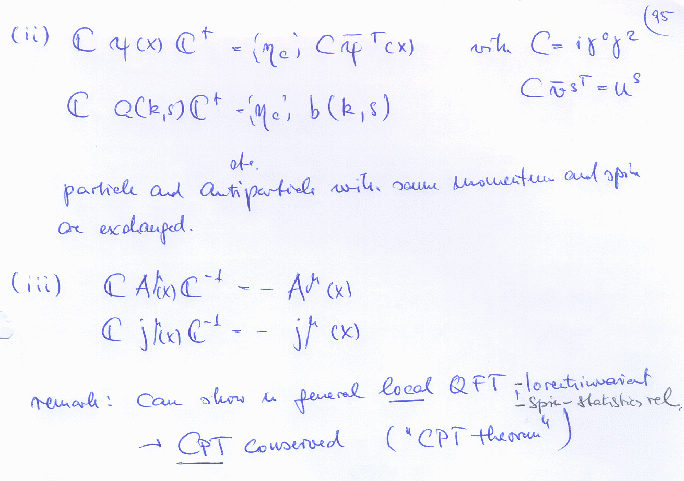 (95
(ii) ℂ ψ(x) ℂ† = (ηc) C ψ̄ᵀ(x) with C = iγ⁰γ²
C v̄ˢᵀ = uˢ
ℂ a(k,s) ℂ† = (ηc) b(k,s)
etc.
particle and antiparticle with same momentum and spin
are exchanged.
(iii) ℂ A^μ(x) ℂ⁻¹ = - A^μ(x)
ℂ j^μ(x) ℂ⁻¹ = - j^μ(x)
remark: Can show in general local QFT - lorentzinvariant
- spin-statistics rel.
→ CPT conserved ("CPT theorem")